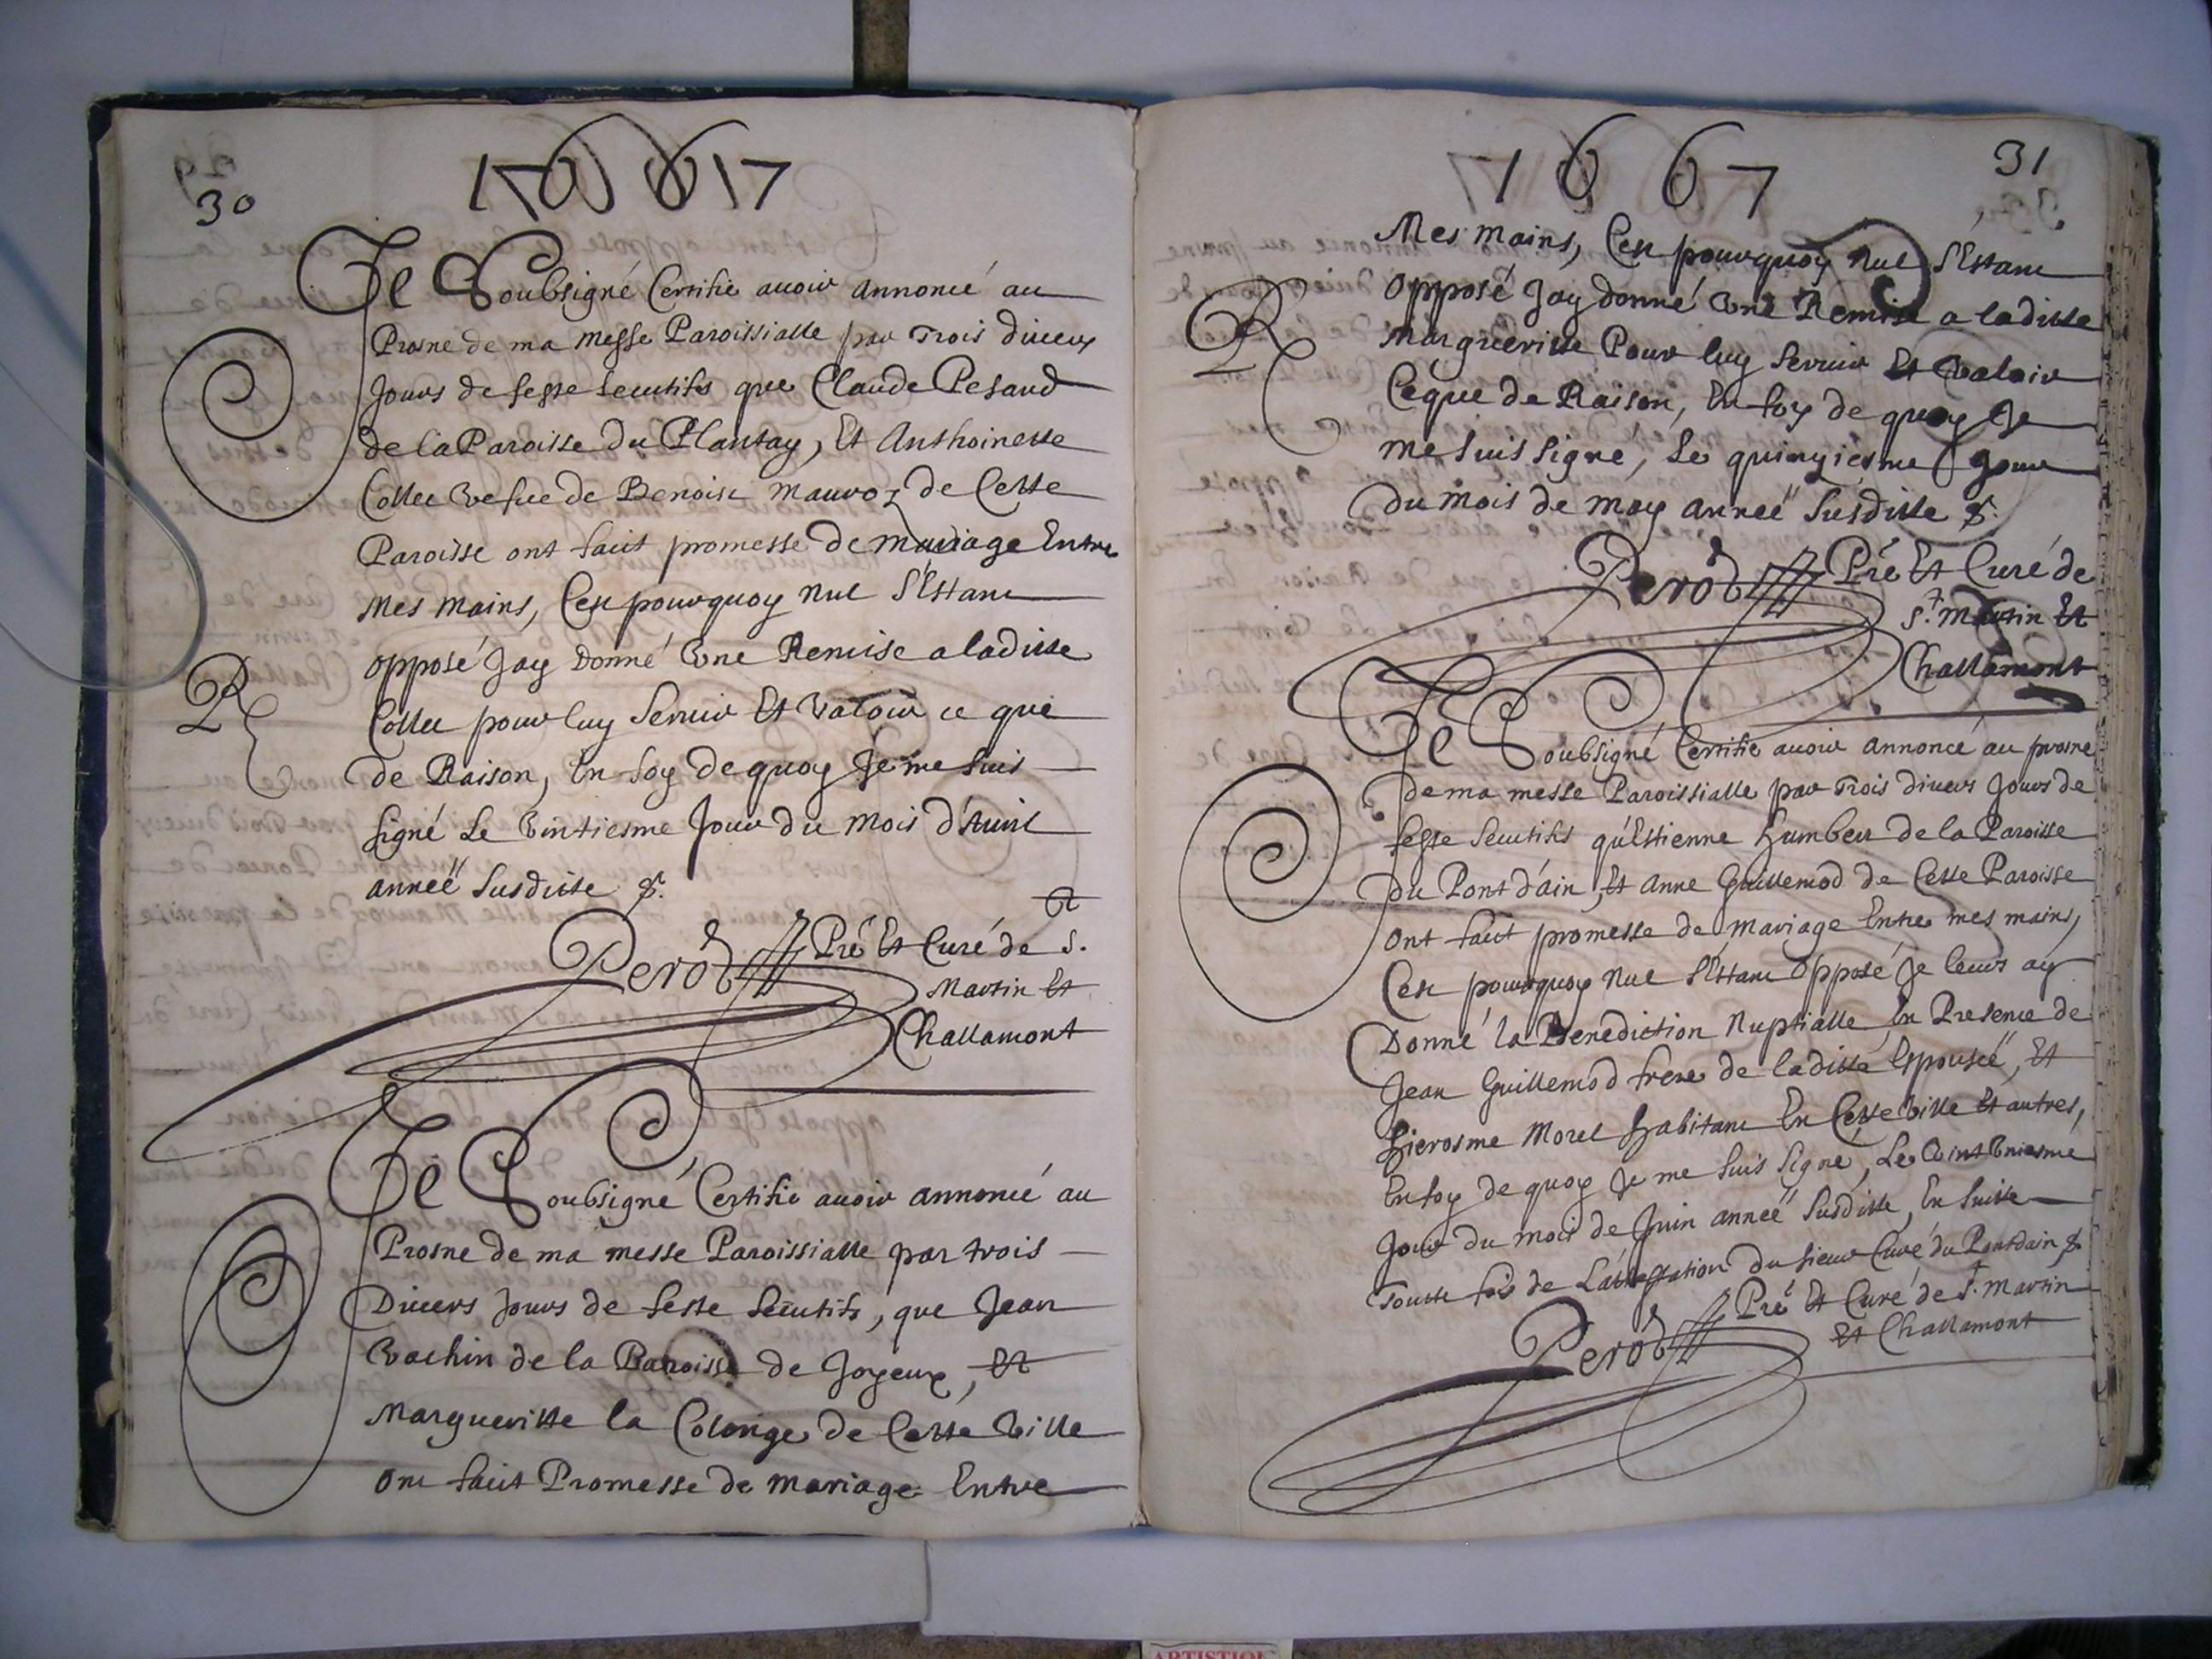 30
1667
Je Soubsigné Certifie auoir annoncé au
Prosne de ma messe Paroissialle par Trois diuers
Jours de feste secutifs que Claude Pesand
de la Paroisse du Plantay, Et Anthoinette
Collet vefue de Benoist Mauvoz de Cette
Paroisse ont fait promesse de mariage Entre
Mes mains, C'est pourquoy nul s'Estant
opposé Jay Donné vne Remise a laditte
R
Collet pour luy seruir Et valoir ce que
de Raison, En foy de quoy Je me suis
signé Le vintiesme Jour du mois d'Auril
anneé susditte &.
Perod Pre Et Curé de S.
Martin Et
Challamont
Je Soubsigné Certifie auoir annoncé au
Prosne de ma messe Paroissialle par trois
Diuers Jours de feste secutifs, que Jean
Vachin de la Paroisse de Joyeux, Et
Margueritte la Colonge de Cette ville
ont fait Promesse de mariage Entre
31
1667
Mes mains, C'est pourquoy nul s'Estant
opposé Jay donné vne Remise a laditte
R
Margueritte Pour luy seruir Et valoir
Ceque de Raison, En foy de quoy Je
me suis signé, Le quinziesme Jour
Du mois de may anneé susditte &.
Perod Pre Et Curé de
St. Martin Et
Challamont
Je Soubsigné Certifie auoir annoncé au prosne
de ma messe Paroissialle par Trois diuers Jours de
feste secutifs qu'Estienne humbert de la Paroisse
du Pont d'ain, Et Anne Guillemod de Cette Paroisse
ont fait promesse de mariage Entre mes mains,
C'est pourquoy nul s'Estant opposé Je leurs ay
Donné la Benediction Nuptialle En Presence de
Jean Guillemod frere de laditte Espouseé, Et
hierosme Morel habitant En Cette ville Et autres,
En foy de quoy Je me suis signé, Le vint vniesme
Jour du mois de Juin anneé susditte, En suitte
Toutte fois de L'attestation du sieur Curé du Pontdain &.
Perod Pre Et Curé de St. Martin
Et Challamont